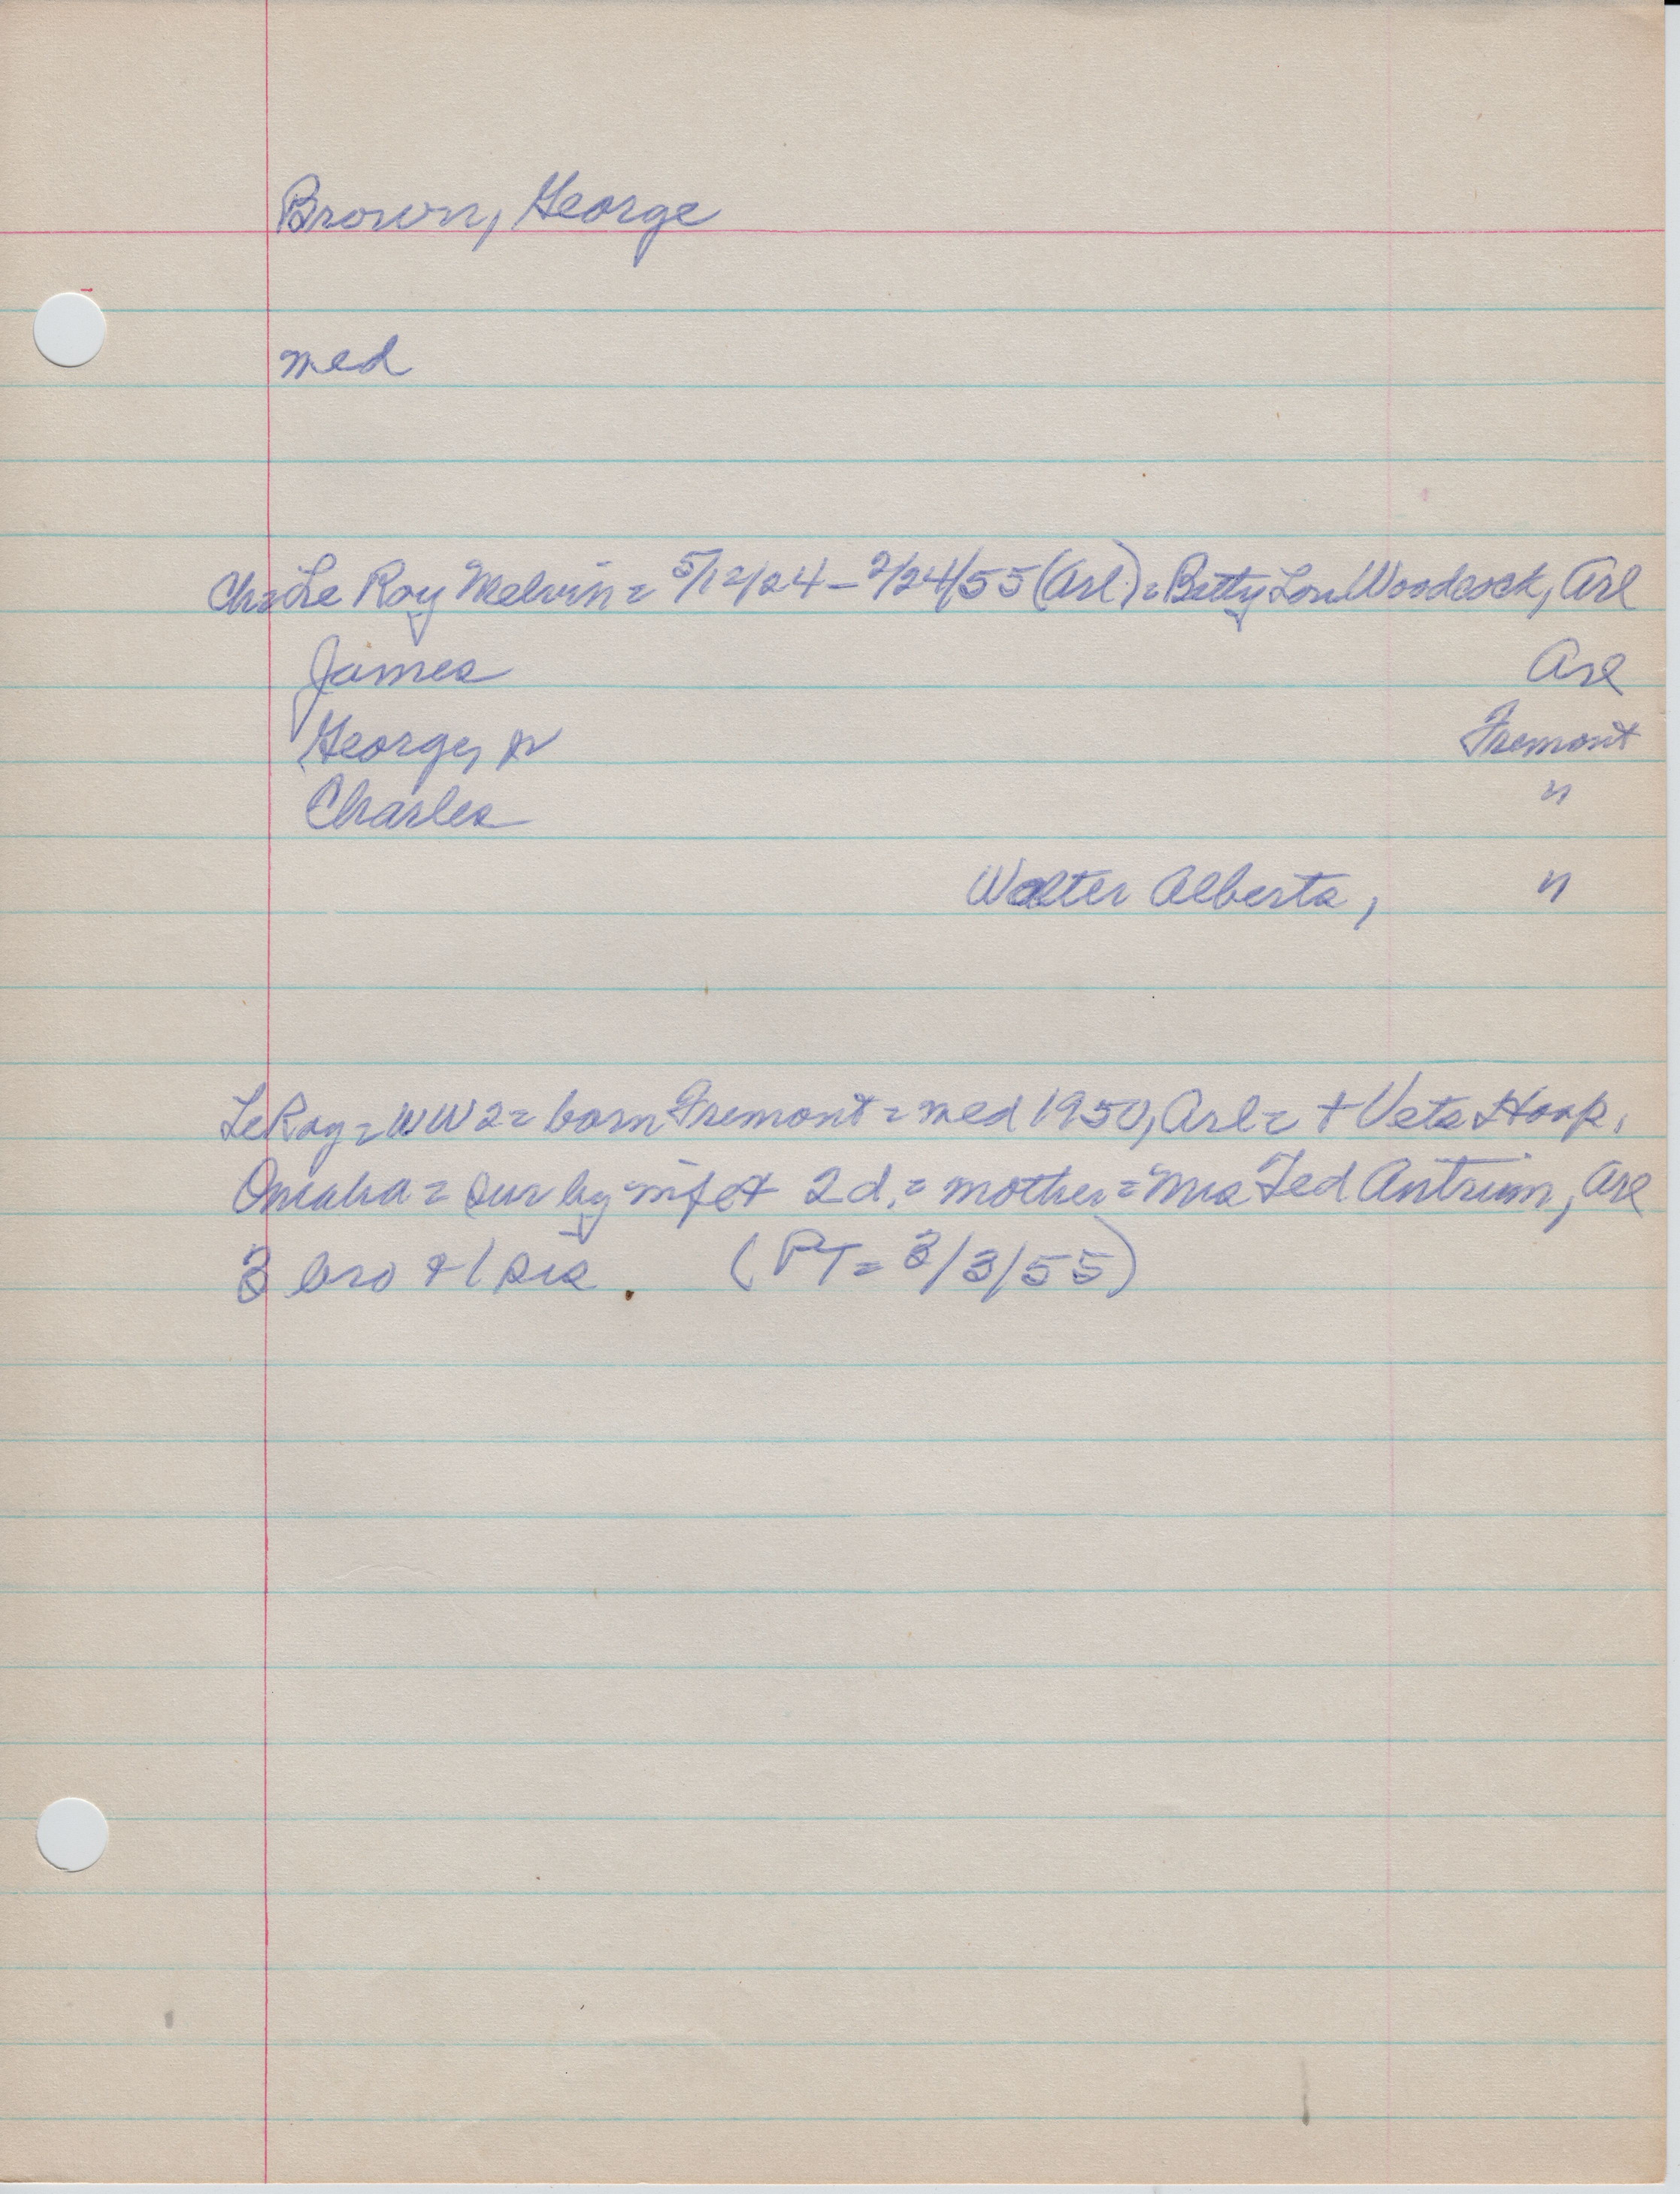 Brown, George
med
Ch = Le Roy Melvin = 5/12/24 - 2/24/55 (Arl) = Betty Lou Woodcock, Arl
James Arl
George, Jr Fremont
Charles "
Walter Alberts, "
LeRoy = WW2 = born Fremont = med 1950, Arl = + Vets Hosp,
Omaha = sur by wife + 2 d. = mother = Mrs Ted Antrim, Arl
3 bro + 1 sis. (PT = 3/3/55)